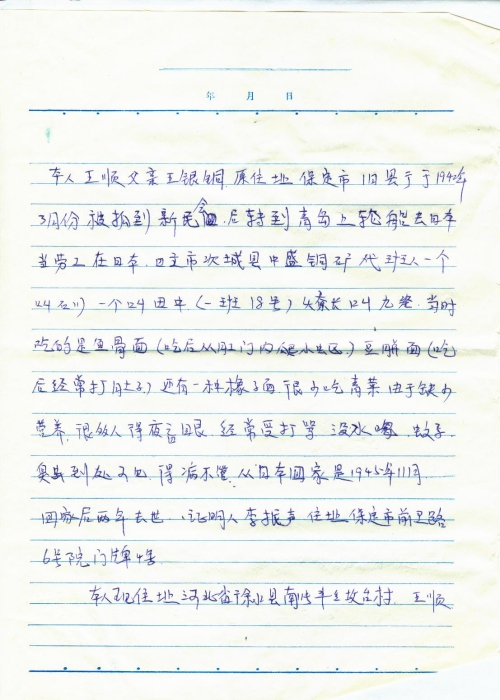 年 月 日
本人王顺父亲王银铜原住址保定市旧县于于1940年
3月份被抓到新民会 后转到青岛上轮船去日本
当劳工在日本 县中盛铜矿代班人一个
叫石川 一个叫田中(一班18号) 长叫九 当时
吃的是鱼骨面(吃后从肛门内 )豆饼面(吃
后经常打肚子)还有一种橡子面很少吃青菜由于缺少
营养 很多人得夜盲眼 经常受打骂 没水喝 蚊子
臭虫到处可见 得病不管 从日本回家是1945年11月
回家后两年去世 证明人李振声 住址保定市前卫路
6号院门牌4号
本人现住址河北省徐水县南 村 王顺